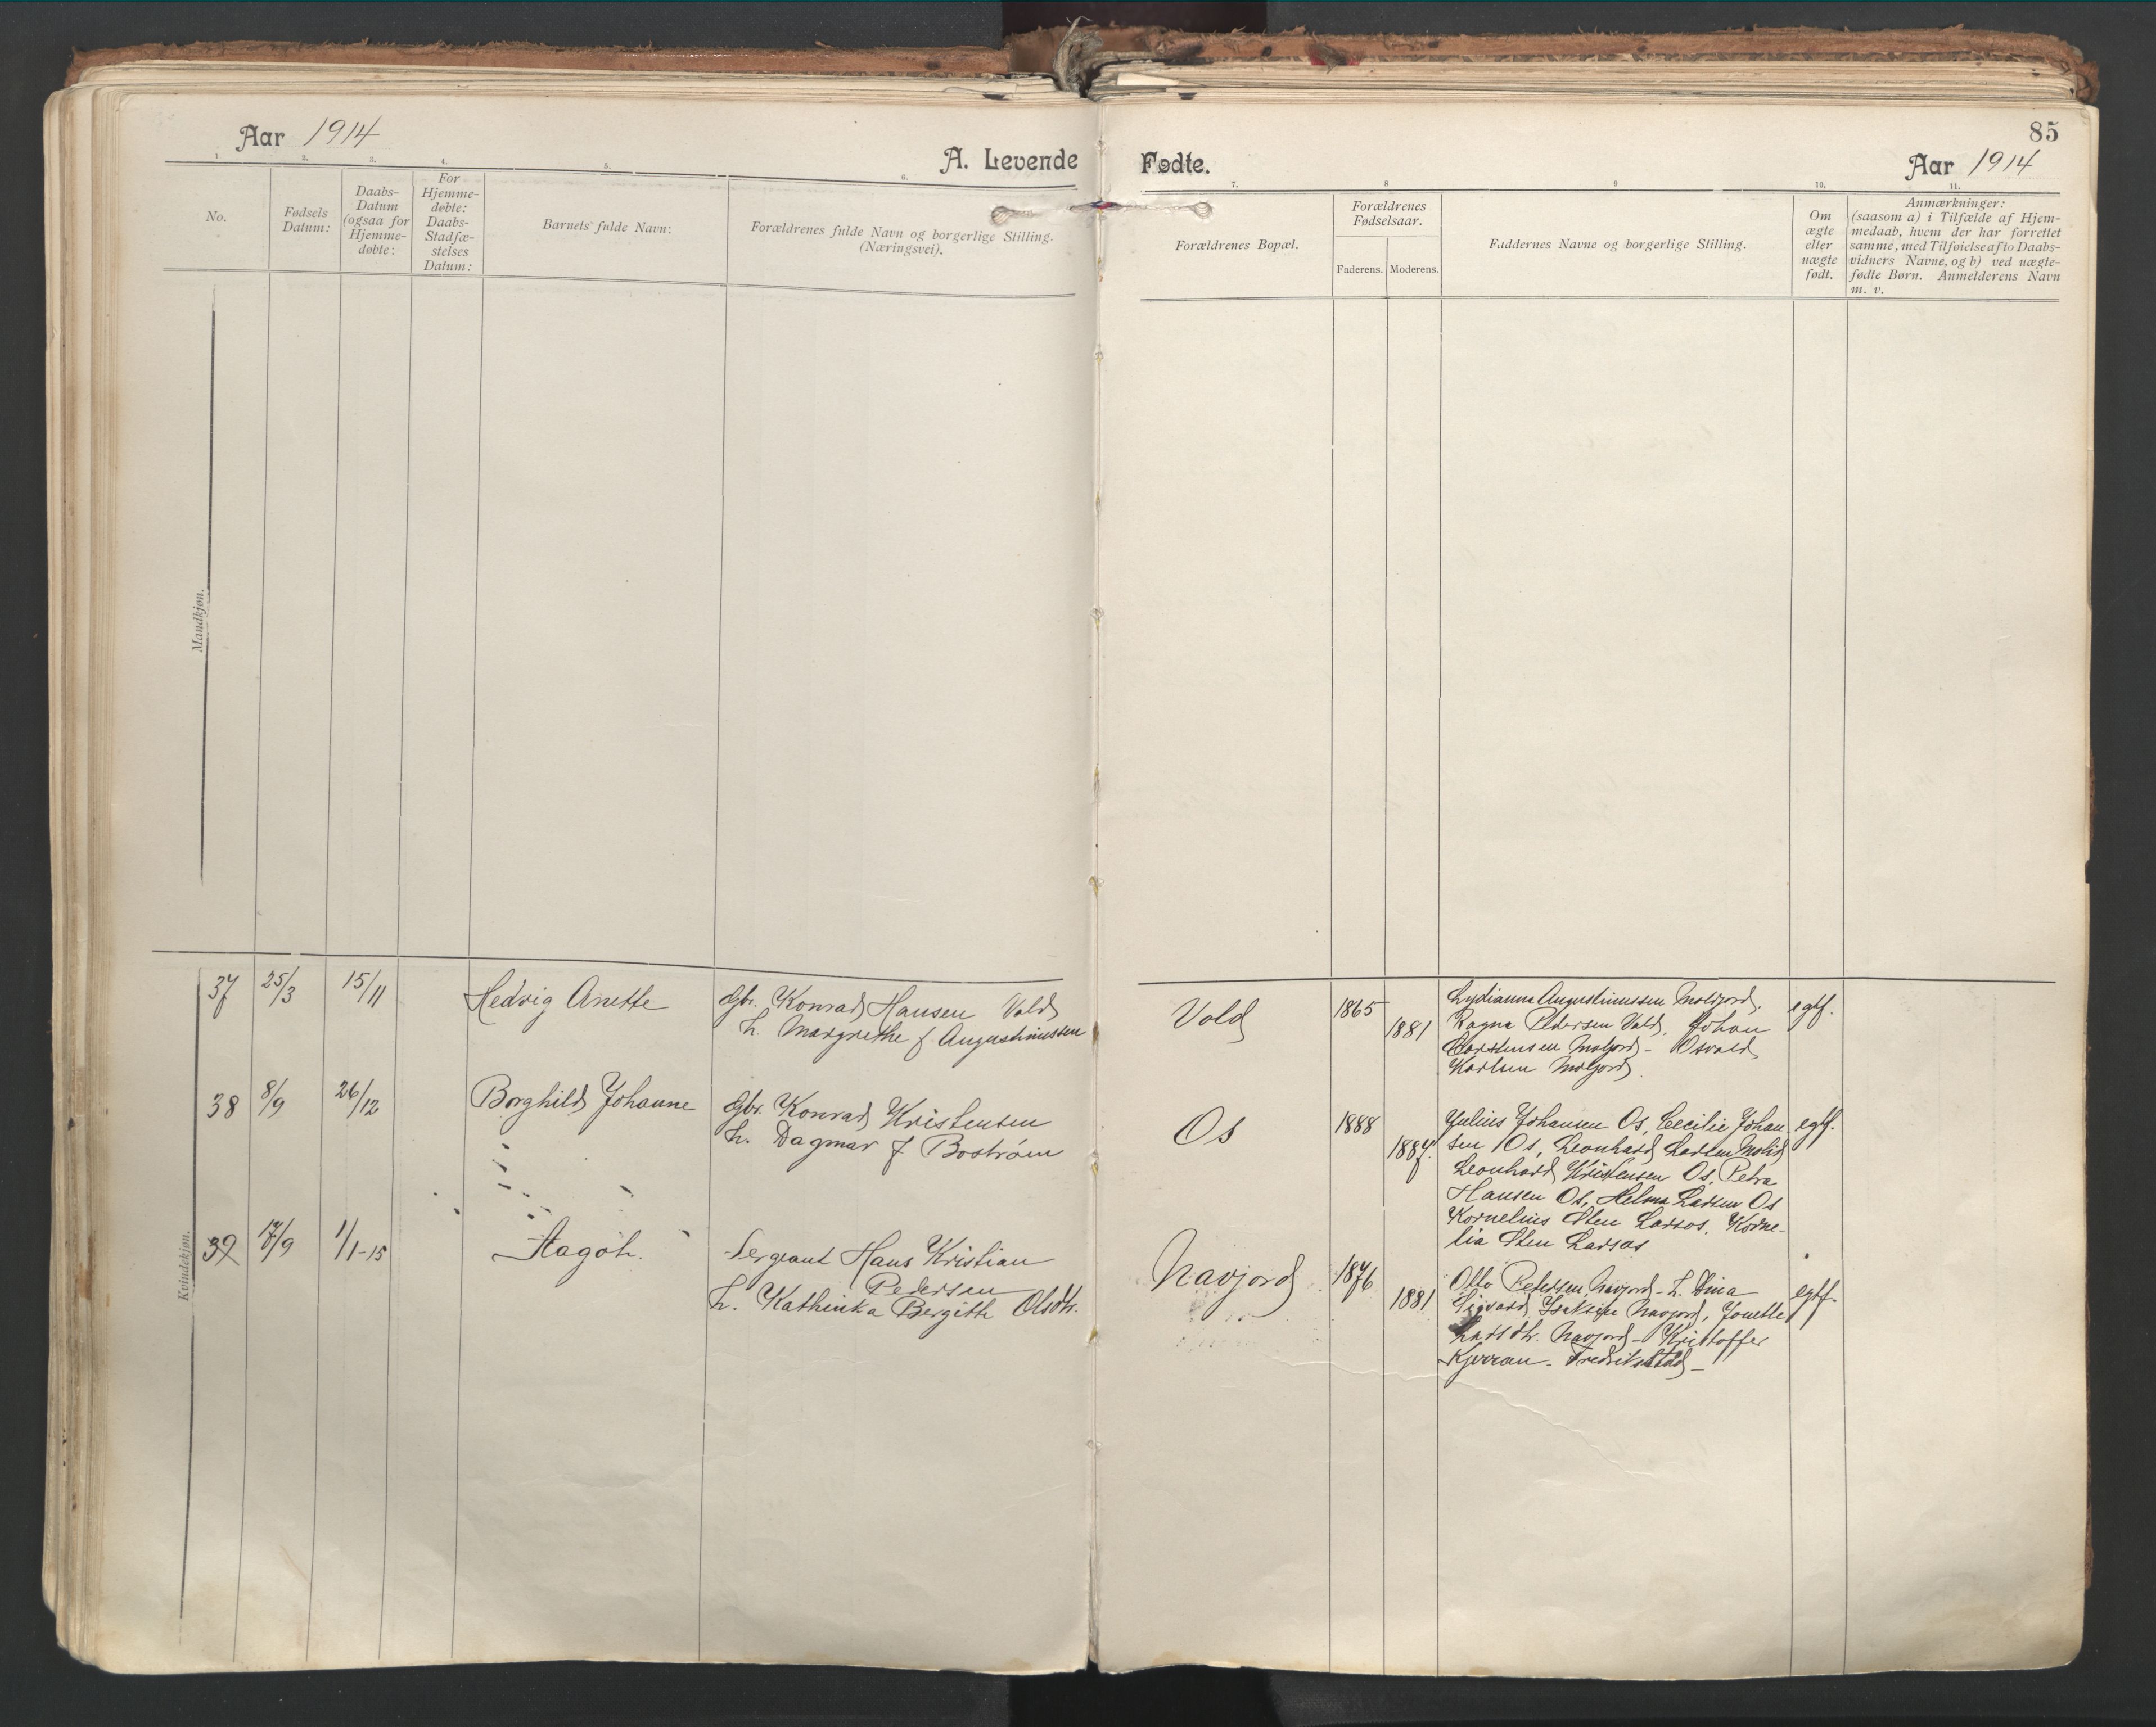 Aar 1914
A. Levende Fødte.
85
Aar 1914
1. 2. 3. 4. 5. 6. 7. 8 9 10. 11.
No.
Fødsels
Datum:
Daabs-
Datum
(ogsaa for
Hjemme-
døbte:
For
Hjemme-
døbte:
Daabs-
Stadfæ-
stelses
Datum:
Barnets fulde Navn:
Forældrenes fulde Navn og borgerlige Stilling.
(Næringsvei).
Forældrenes Bopæl.
Forældrenes
Fødselsaar.
Faderens. Moderens.
Faddernes Navne og borgerlige Stilling.
Om
ægte
eller
uægte
født.
Anmærkninger:
(saasom a) i Tilfælde af Hjem-
medaab, hvem der har forrettet
samme, med Tilføielse af to Daabs-
vidners Navne, og b) ved uægte-
fødte Børn. Anmelderens Navn
m. v.
Mandkjøn.
Kvindekjøn.
37 25/3 15/11 Hedvig Anette
Gbr. Konrad Hansen Vold
h. Margrethe f Augustinussen
Vold 1865 1881
Lydianna Augustinussen Moldjord,
Ragna Pedersen Vold, Johan
Carstensen Moljord - Osvald
Karlsen Moljord.
egtf.
38 8/9 26/12 Borghild Johanne
Gbr. Konrad Kristensen
h. Dagmar f Bostrøm
Os 1888 1887.
Julius Johansen Os, Cecilie Johan
sen Os, Leonhard Larsen
Leonhard Kristensen Os, Petra
Hansen Os, Helma Larsen Os
Kornelius Sten Larsos. Korne-
lia Sten Larsos
egtf.
39 17/9 1/1-15 Aagoth.
Sergeant Hans Kristian
Pedersen
h. Kathinka Bergith Olsdtr.
Navjord 1876 1881
Otto Petersen Navjord - h. Dina
Sigvard Isaksen Navjord, Jonette
Larsdtr. Navjord - Kristoffer
Kjerran - Fredrikstad -
egtf.